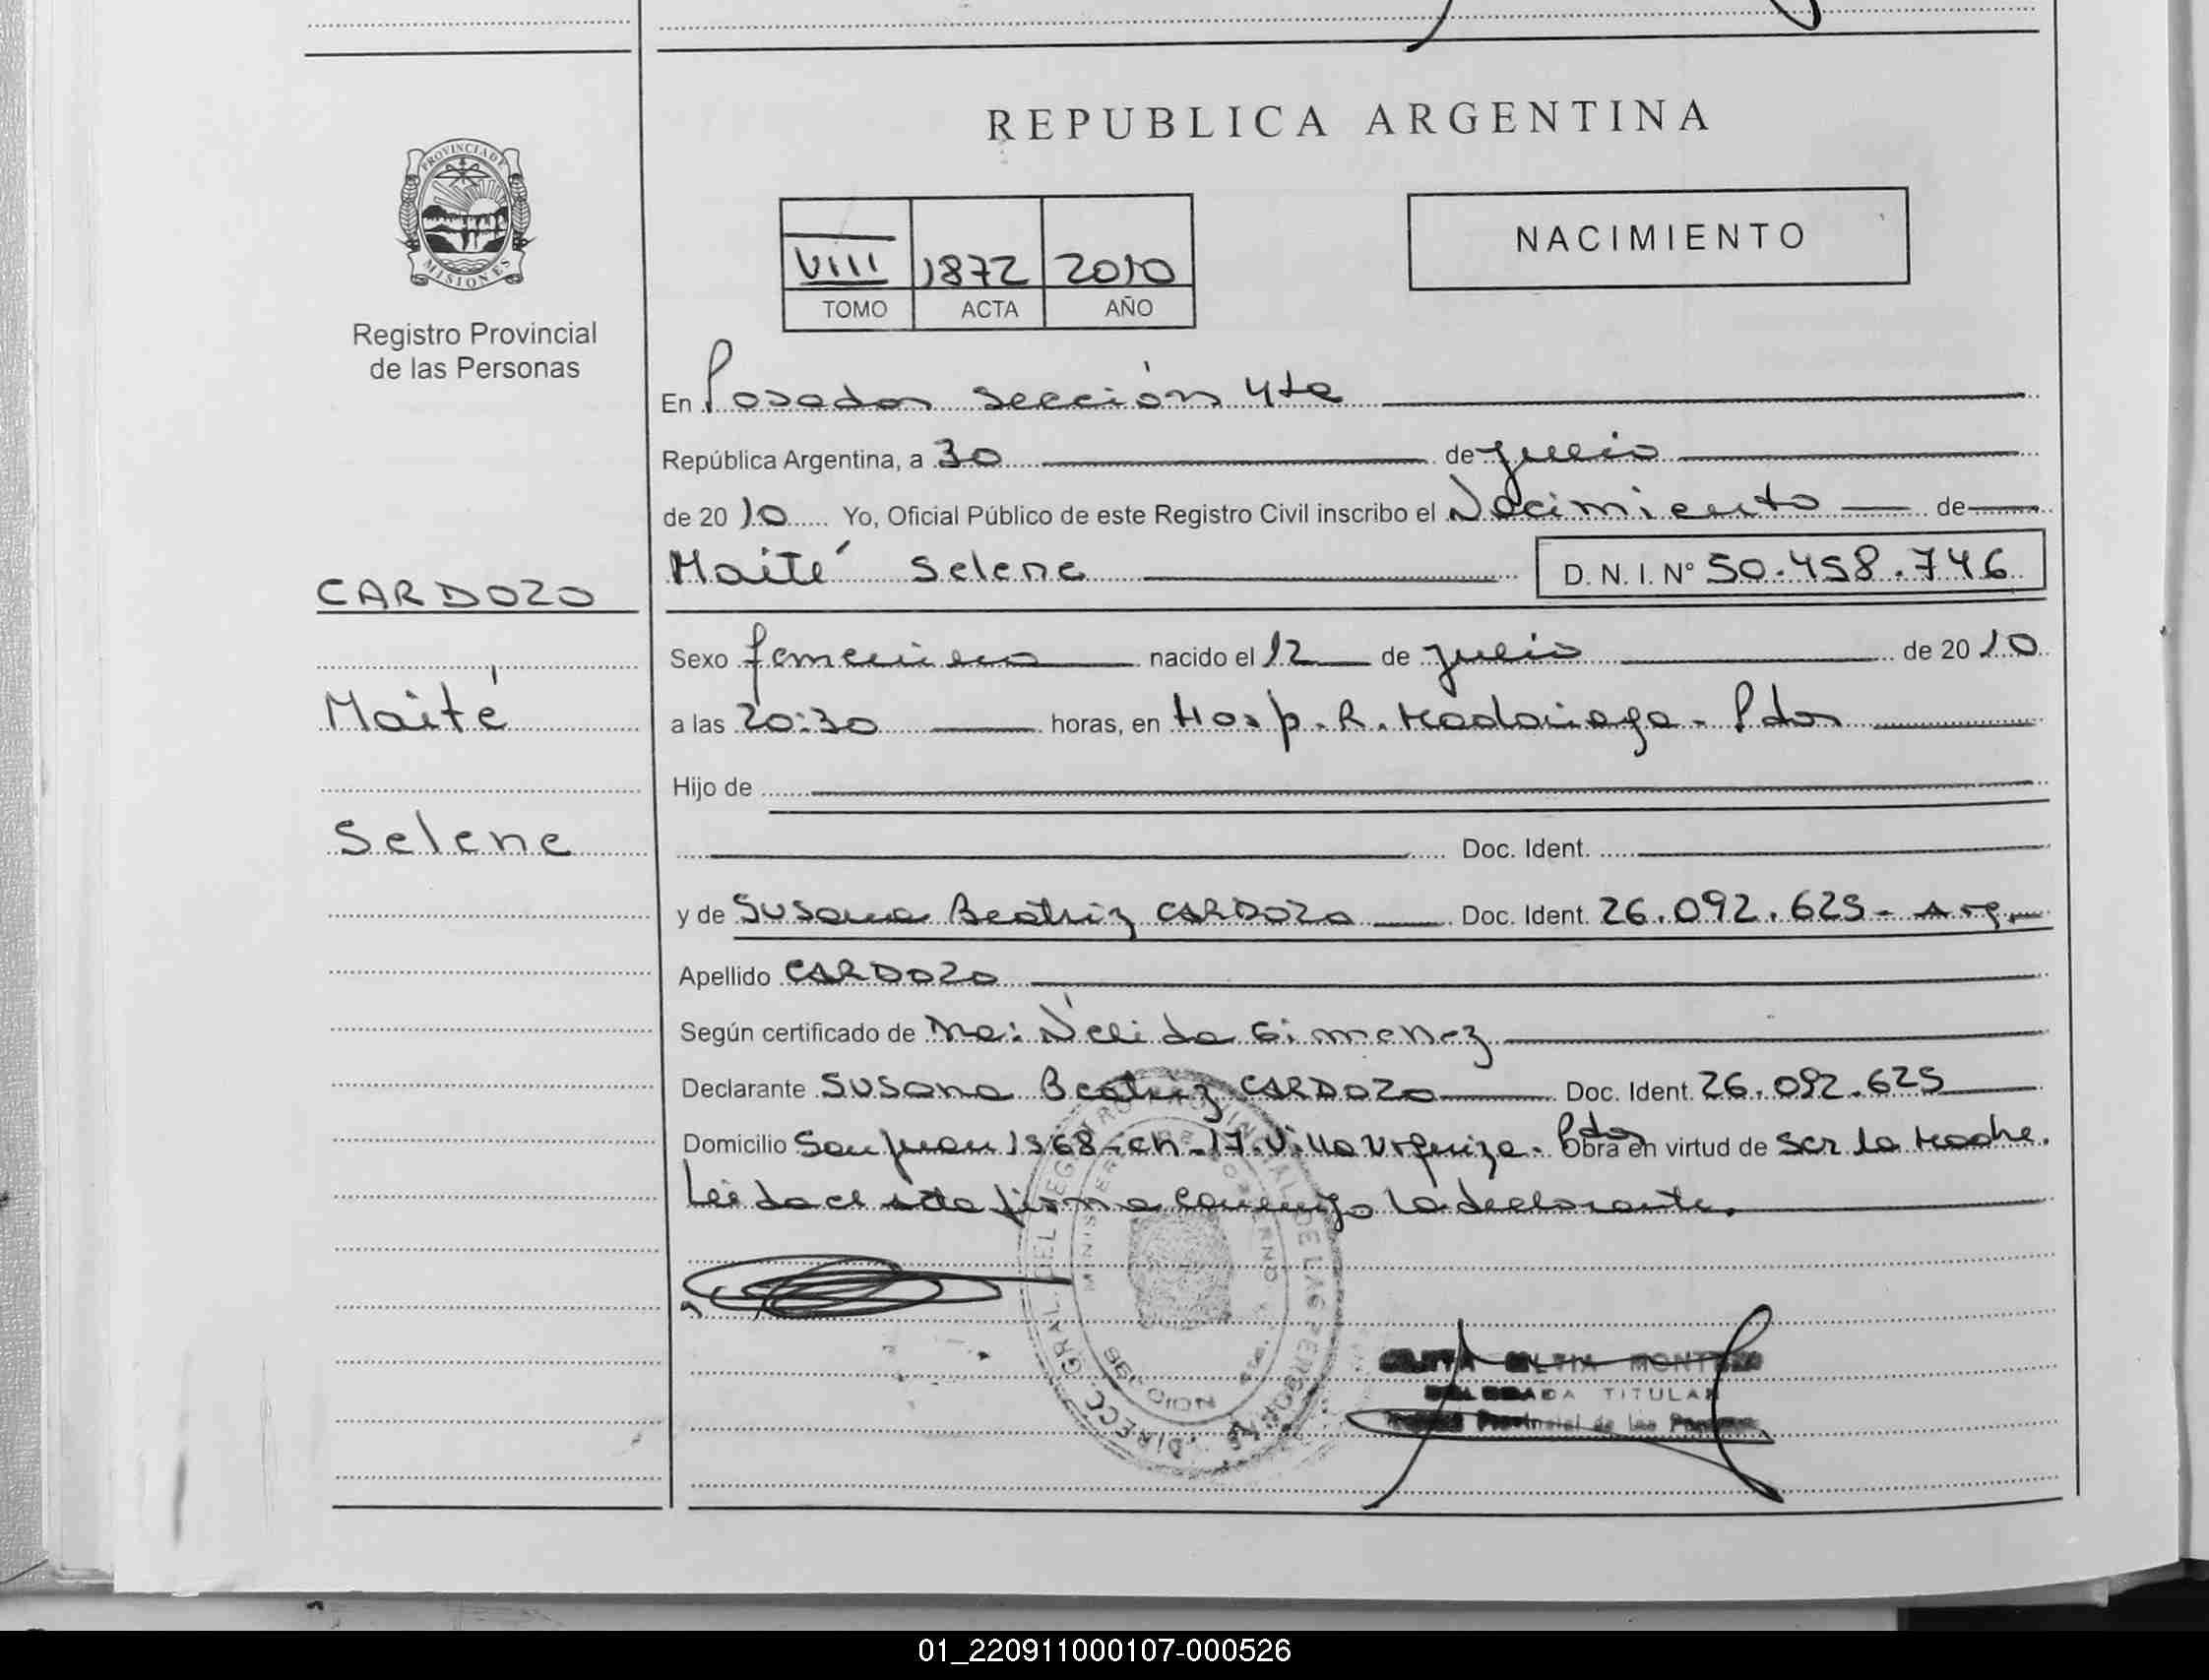 REPUBLICA ARGENTINA
PROVINCIA DE MISIONES
Registro Provincial
de las Personas
VIII 1872 2010
TOMO ACTA AÑO
NACIMIENTO
En Posadas sección 4ta
República Argentina, a 30 de julio
de 2010 Yo, Oficial Público de este Registro Civil inscribo el Nacimiento de
Maité Selene D. N. I. Nº 50.458.746
CARDOZO
Maité
Selene
Sexo femenino nacido el 12 de julio de 2010
a las 20:30 horas, en Hosp. R. Madariaga - Pdas
Hijo de
Doc. Ident.
y de Susana Beatriz CARDOZO Doc. Ident. 26.092.625 - Arg.
Apellido CARDOZO
Según certificado de Nélida Gimenez
Declarante Susana Beatriz CARDOZO Doc. Ident. 26.092.625
Domicilio San Juan 1968 - ch. 17. Villa Urquiza - Pdas Obra en virtud de ser la Madre.
Leída el acta firma conmigo la declarante.
DIRECC. GRAL. DEL REGISTRO PROVINCIAL DE LAS PERSONAS
TITULAR
Provincial de las
01_220911000107-000526